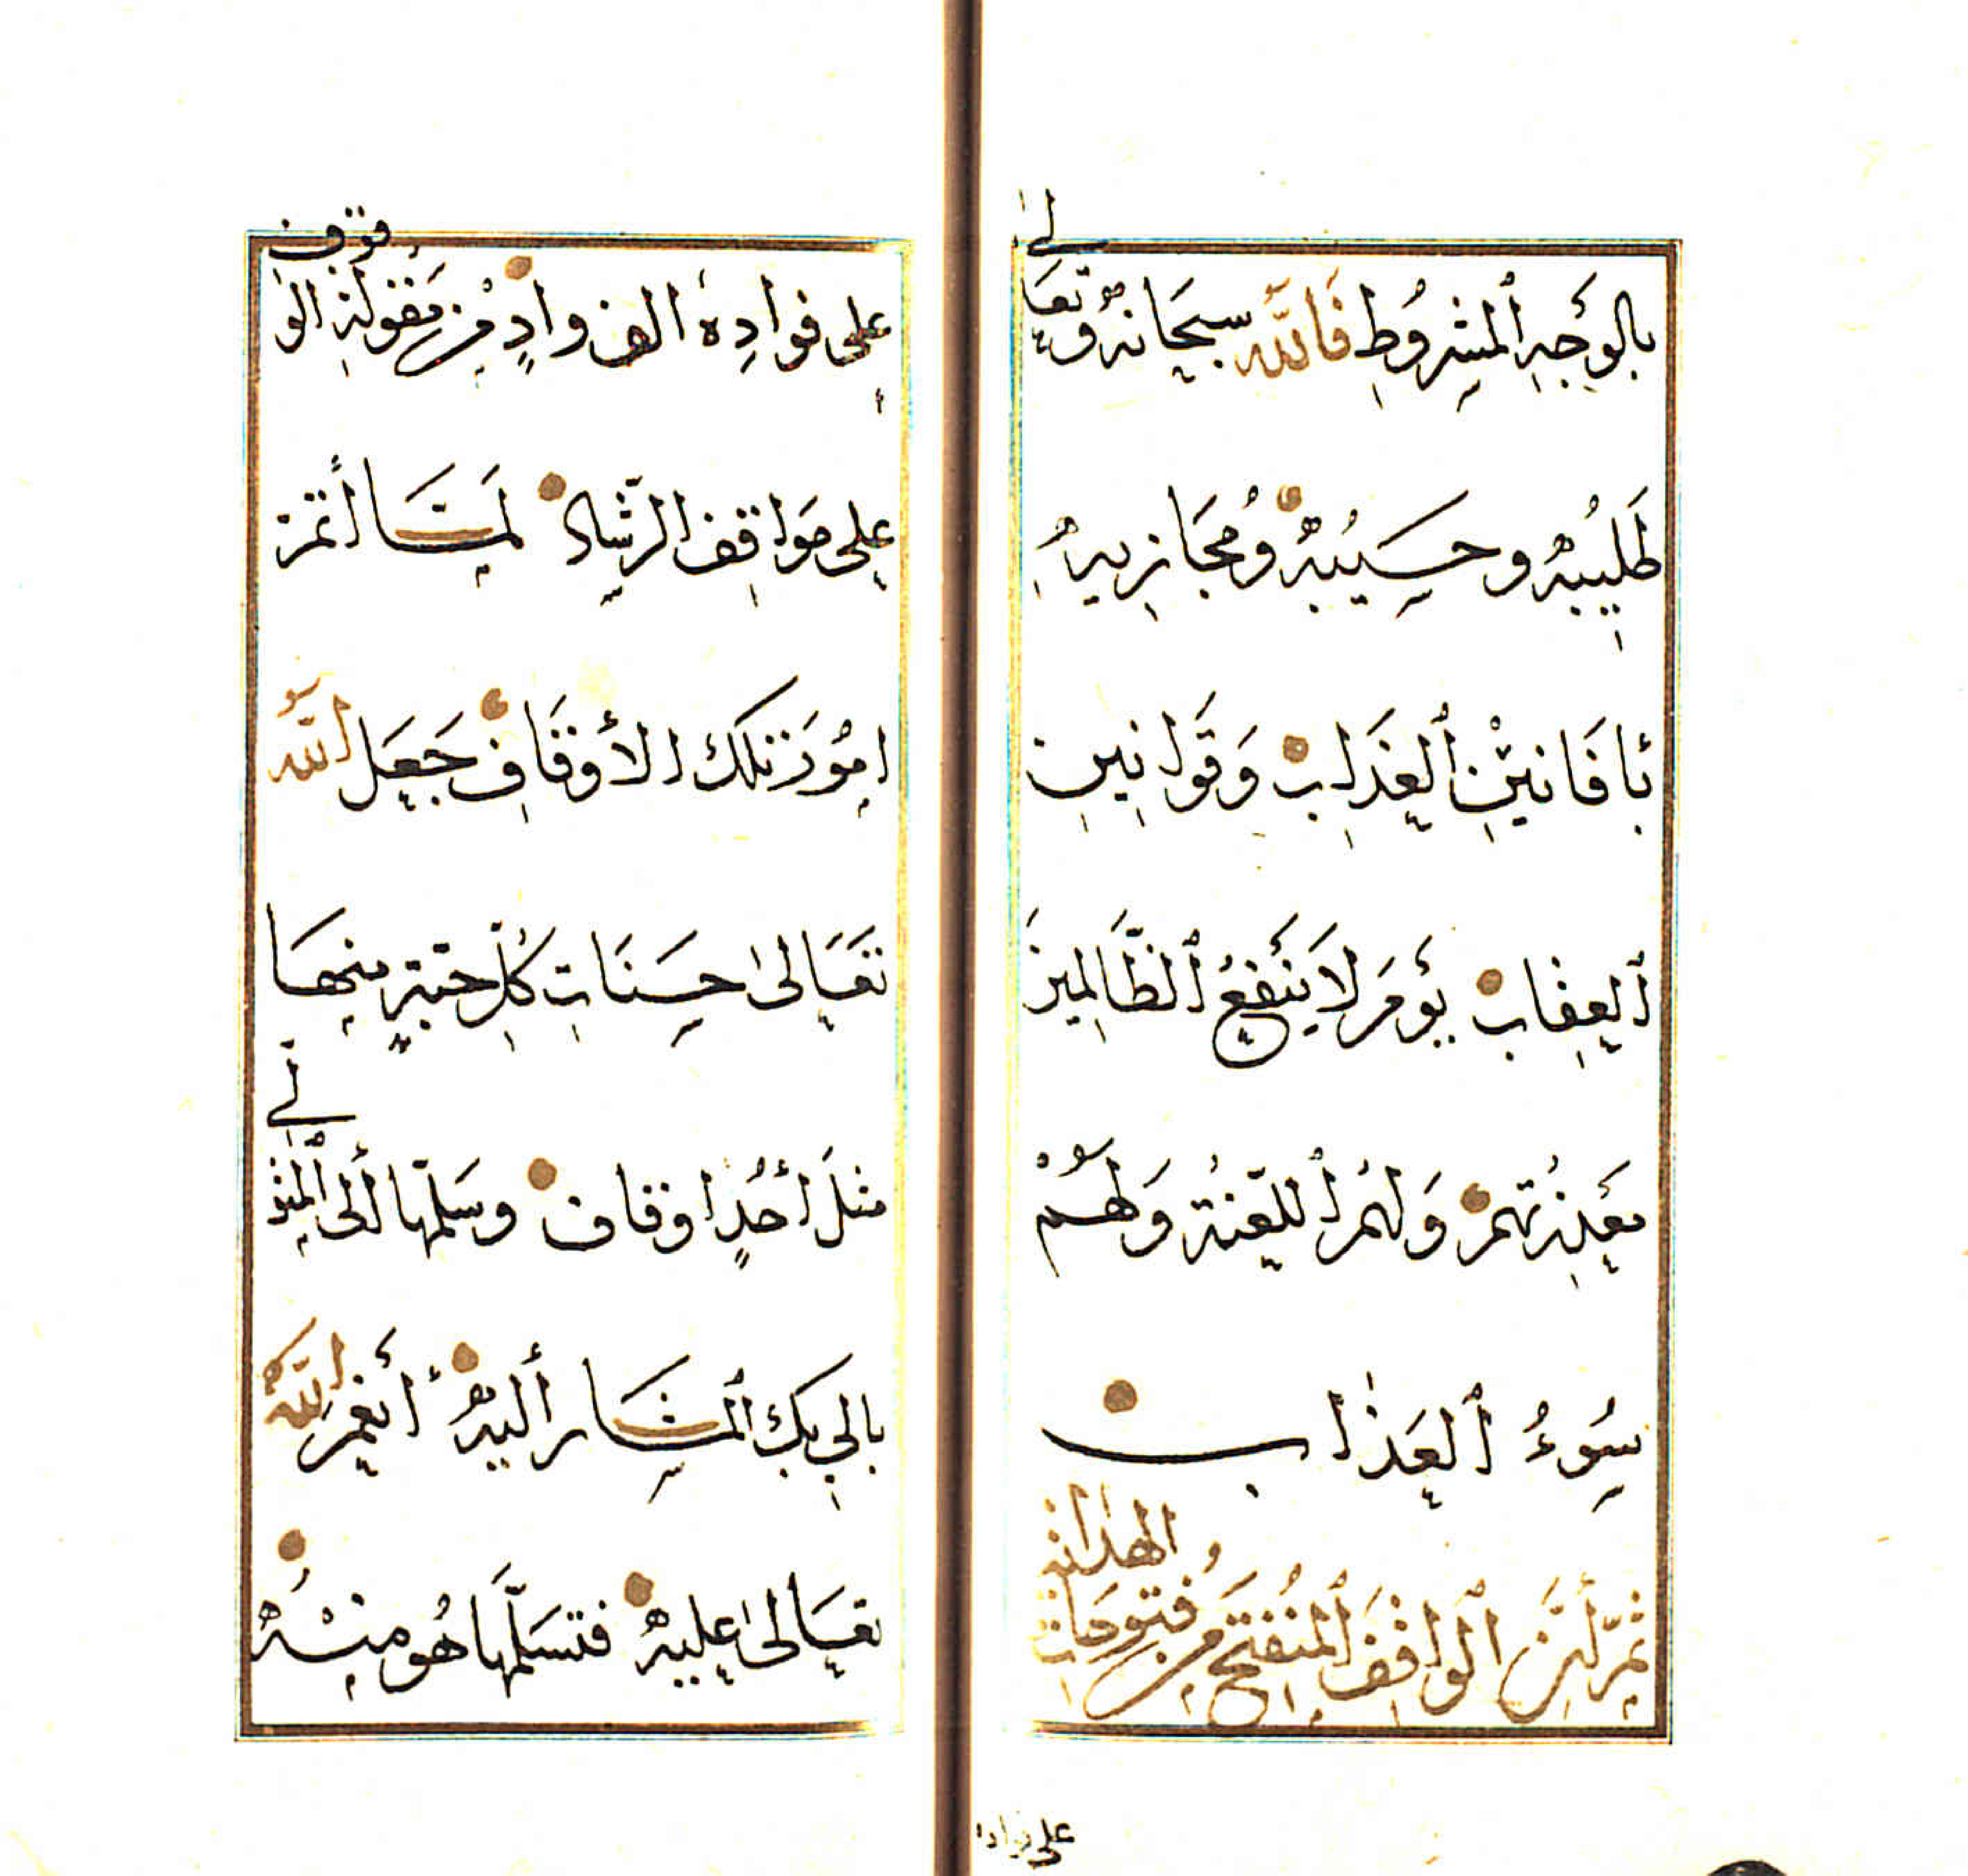 بالوجه المشروط فالله سبحانه وتعالى
طليبه وحسيبه ومجازيه
بافانين العذاب وقوانين
العقاب يوم لا ينفع الظالمين
معذرتهم ولهم اللعنة ولهم
سوء العذاب
ثم أن الواقف المنفتح من فتوحات الهدايه
على فؤاده الف واد من مقولة الوقوف
على مواقف الرشاد لما أتم
امور تلك الأوقاف جعل الله
تعالى حسنات كل حبة منها
مثل أحد اوقاف وسلمها ألى المتولي
بالي بك المشار أليه أنعم الله
تعالى عليه فتسلمها هو منه